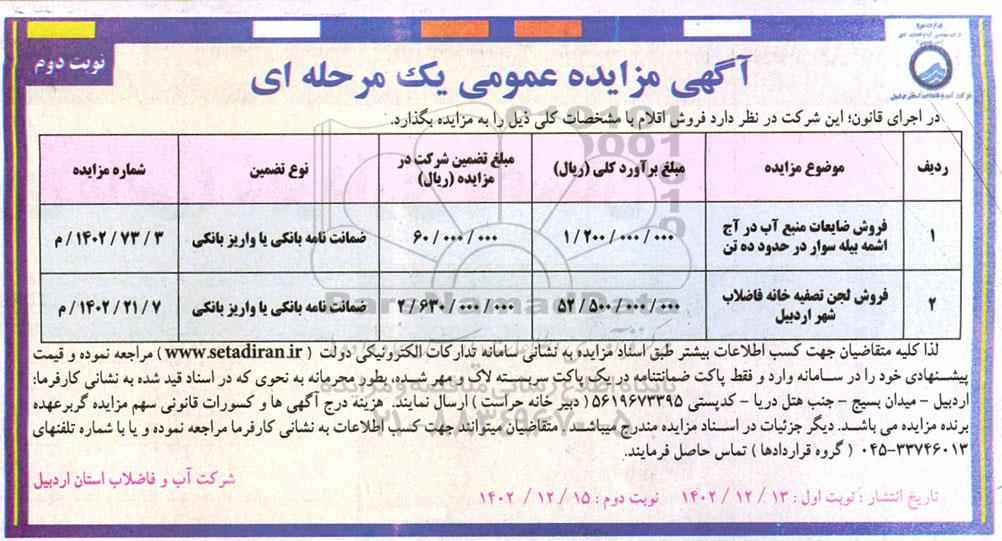 نوبت دوم
آگهی مزایده عمومی یک مرحله ای
شرکت آب و فاضلاب استان اردبیل
در اجرای قانون؛ این شرکت در نظر دارد فروش اقلام با مشخصات کلی ذیل را به مزایده بگذارد.
ردیف | موضوع مزایده | مبلغ برآورد کلی (ریال) | مبلغ تضمین شرکت در مزایده (ریال) | نوع تضمین | شماره مزایده
۱ | فروش ضایعات منبع آب در آج اشمه بیله سوار در حدود ده تن | ۱/۲۰۰/۰۰۰/۰۰۰ | ۶۰/۰۰۰/۰۰۰ | ضمانت نامه بانکی یا واریز بانکی | ۳ / ۷۳ / ۱۴۰۲ / م
۲ | فروش لجن تصفیه خانه فاضلاب شهر اردبیل | ۵۲/۵۰۰/۰۰۰/۰۰۰ | ۲/۶۳۰/۰۰۰/۰۰۰ | ضمانت نامه بانکی یا واریز بانکی | ۷ / ۲۱ / ۱۴۰۲ / م
لذا کلیه متقاضیان جهت کسب اطلاعات بیشتر طبق اسناد مزایده به نشانی سامانه تدارکات الکترونیکی دولت (www.setadiran.ir) مراجعه نموده و قیمت
پیشنهادی خود را در سامانه وارد و فقط پاکت ضمانتنامه در یک پاکت سربسته لاک و مهر شده، بطور محرمانه به نحوی که در اسناد قید شده به نشانی کارفرما:
اردبیل - میدان بسیج - جنب هتل دریا - کدپستی ۵۶۱۹۶۷۳۳۹۵ (دبیر خانه حراست) ارسال نمایند. هزینه درج آگهی ها و کسورات قانونی سهم مزایده گر برعهده
برنده مزایده می باشد. دیگر جزئیات در اسناد مزایده مندرج میباشد. متقاضیان میتوانند جهت کسب اطلاعات به نشانی کارفرما مراجعه نموده و یا با شماره تلفنهای
۰۴۵-۳۳۷۴۶۰۱۳ (گروه قراردادها) تماس حاصل فرمایند.
شرکت آب و فاضلاب استان اردبیل
تاریخ انتشار: نوبت اول: ۱۳ / ۱۲ / ۱۴۰۲ نوبت دوم: ۱۵ / ۱۲ / ۱۴۰۲